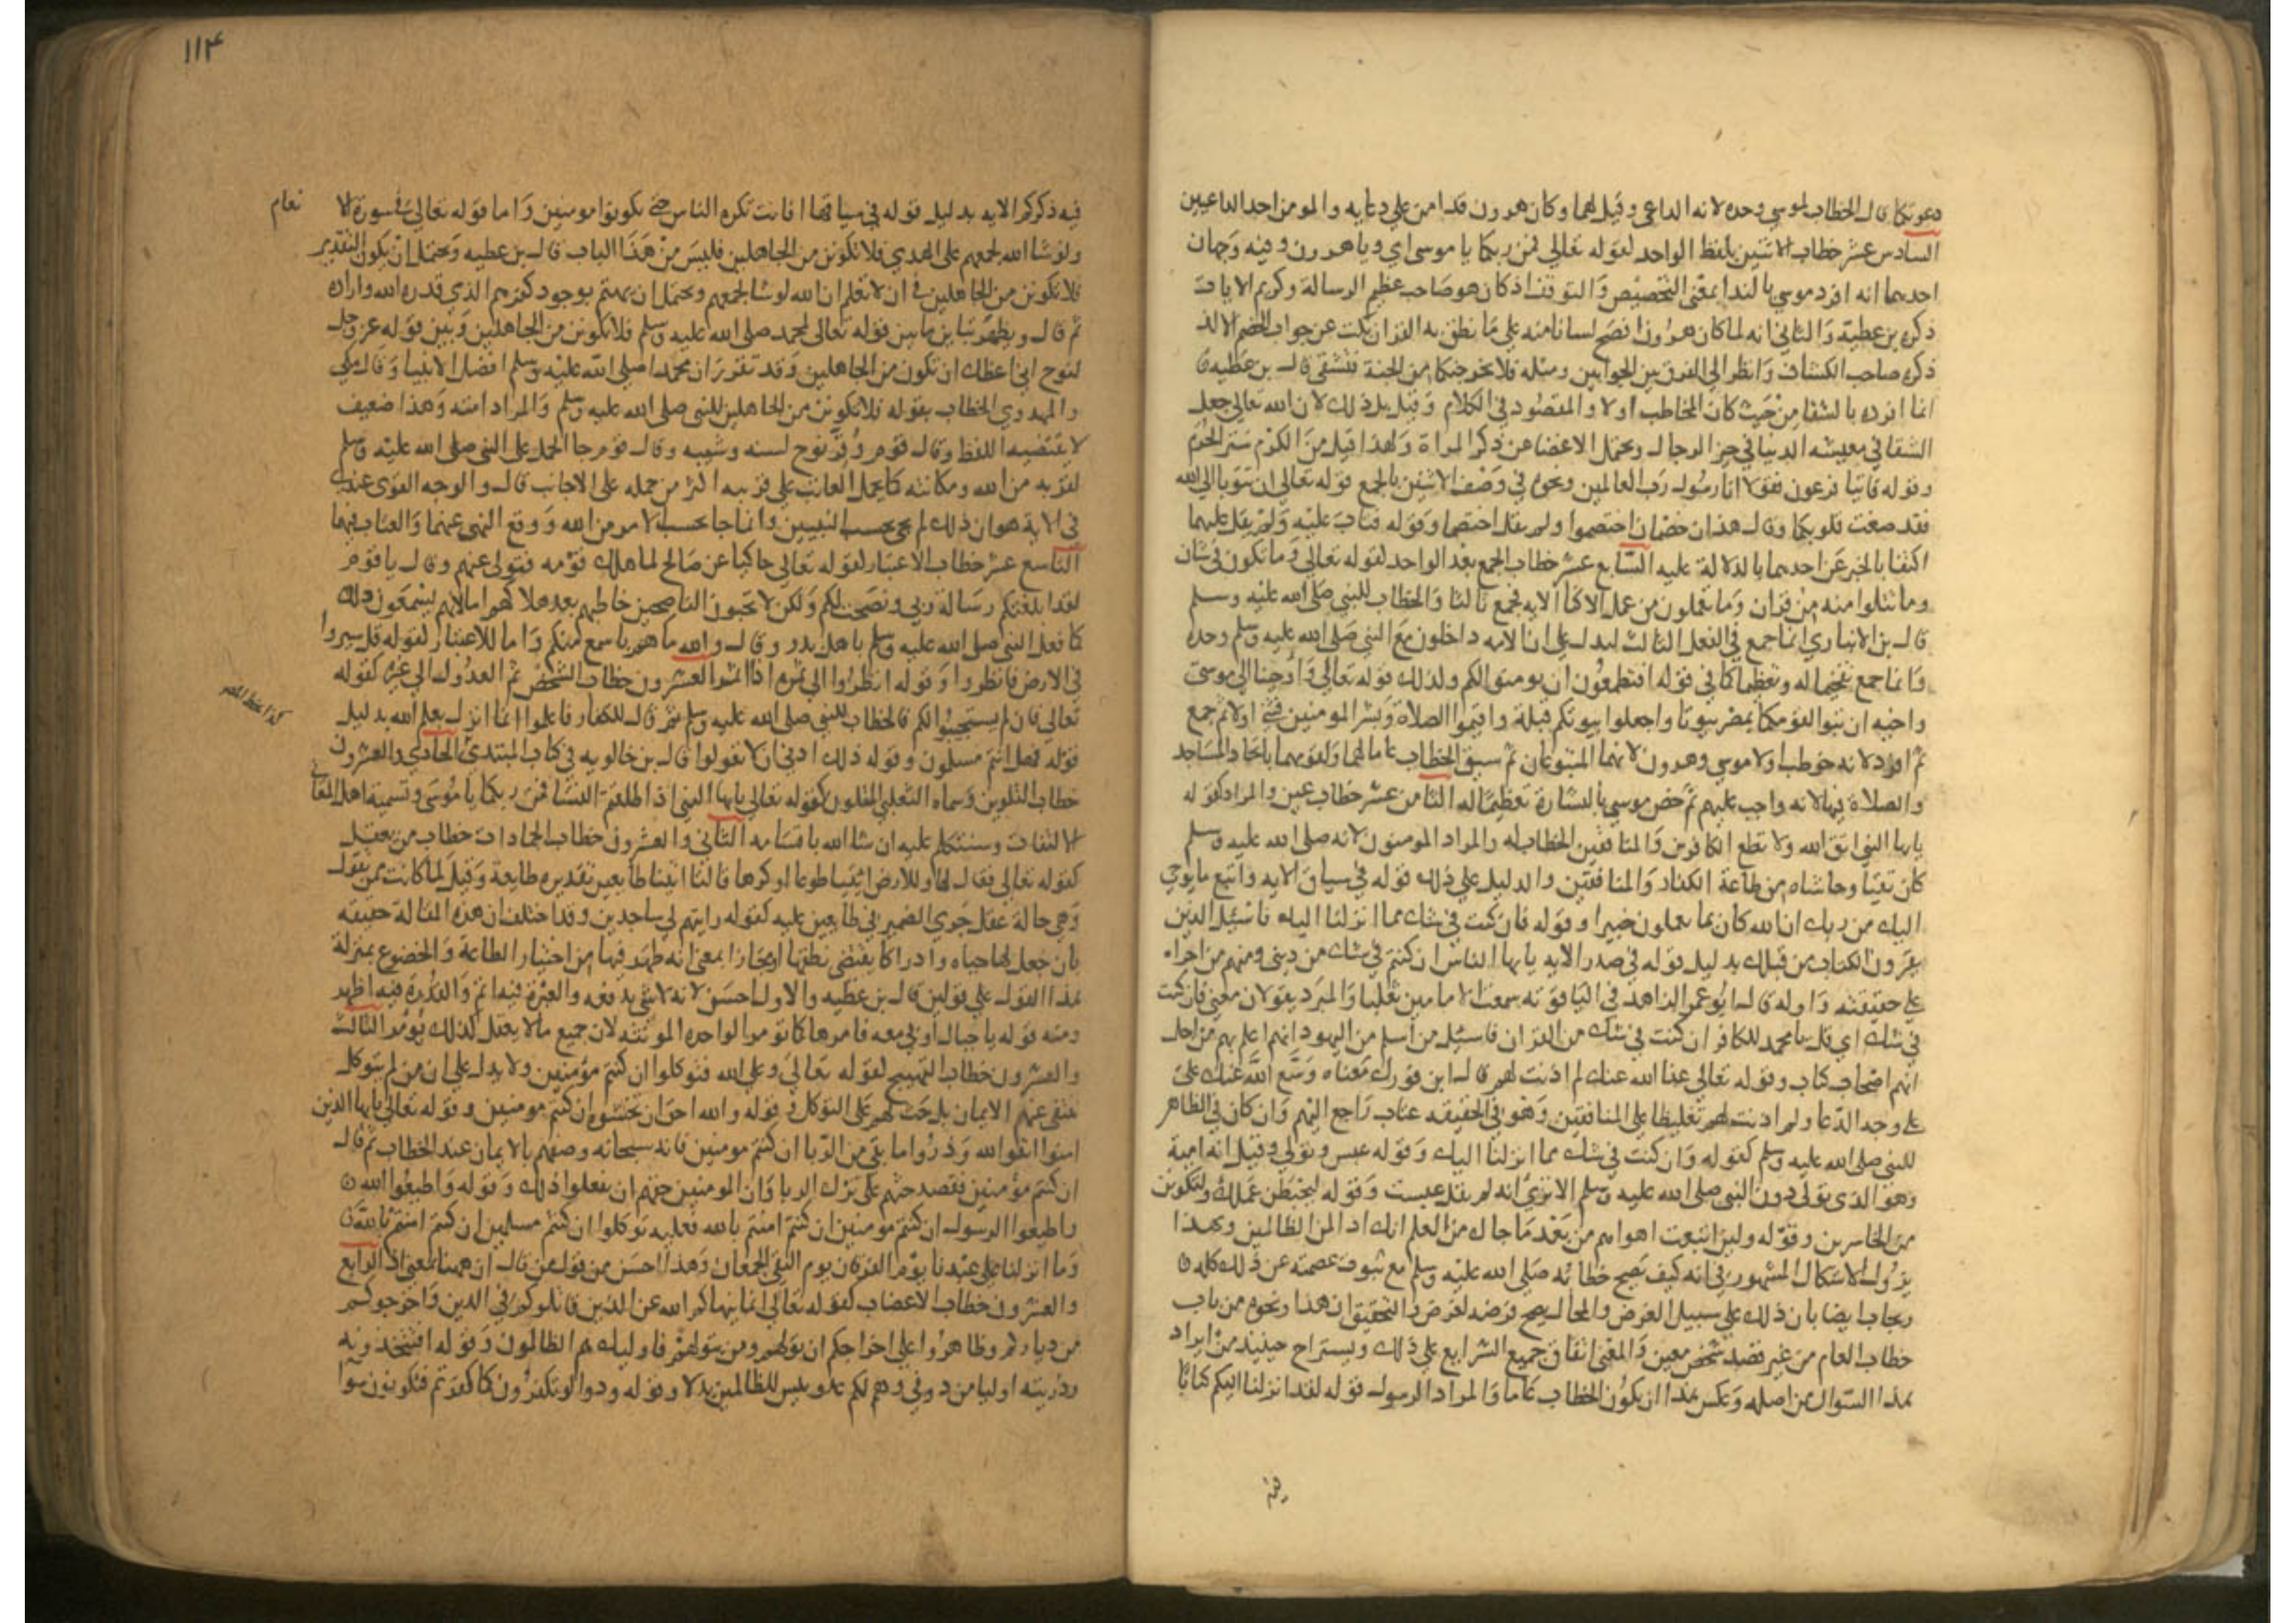 دعوتكما قال الخطاب لموسى وحده لانه الداعى وقيل لهما وكان هرون قد امن على دعايه والمومن احد الداعيين
السادس عشر خطاب الاثنين بلفظ الواحد لقوله تعالى فمن ربكما يا موسى اي ويا هرون وفيه وجهان
احدهما انه افرد موسى بالندا بمعنى التخصيص والتوقف اذ كان هو صاحب عظيم الرسالة وكريم الايات
ذكره بن عطية والثاني انه لما كان هرون افصح لسانا منه على ما نطق به القران نكت عن جواب الخصم الالد
ذكره صاحب الكشاف وانظر الى الفرق بين الجوابين ومثله فلا يخرجنكما من الجنة فتشقى قال بن عطيه
انما افرده بالشقا من حيث كان المخاطب اولا والمقصود في الكلام وقيل بل ذلك لان الله تعالى جعل
الشقا في معيشه الدنيا في حيز الرجال ويحتمل الاغضا عن ذكر المراة ولهذا قيل من الكرم ستر الحرم
وقوله فاتيا فرعون فقولا انا رسول رب العالمين ونحوه في وصف الاثنين بالجمع قوله تعالى ان تتوبا الى الله
فقد صغت قلوبكما وقال هذان خصمان اختصموا ولم يقل اختصما وقوله فتاب عليه ولم يقل عليهما
اكتفا بالخبر عن احدهما بالدلالة عليه السابع عشر خطاب الجمع بعد الواحد لقوله تعالى وما تكون في شان
وما تتلوا منه من قران وما تعملون من عمل الا كنا الايه فجمع ثالثا والخطاب للنبي صلى الله عليه وسلم
قال بن الانباري انما جمع في الفعل الثالث ليدل على ان الامه داخلون مع النبي صلى الله عليه وسلم وحده
وانما جمع تفخيما له وتعظيما كما في قوله افتطمعون ان يومنوا لكم ولذلك قوله تعالى واوحينا الى موسى
واخيه ان تبوا لقومكما بمصر بيوتا واجعلوا بيوتكم قبلة واقيموا الصلاة وبشر المومنين فثنى اولا ثم جمع
ثم افرد لانه خوطب اولا موسى وهرون لانهما المتبوعان ثم سيق الخطاب عاما لهما ولقومهما باتخاذ المساجد
والصلاة فيها لانه واجب عليهم ثم خص موسى بالبشارة تعظيما له الثامن عشر خطاب عين والمراد كقوله
يايها النبي اتق الله ولا تطع الكافرين والمنافقين الخطاب له والمراد المومنون لانه صلى الله عليه وسلم
كان تقيا وحاشاه من طاعة الكفار والمنافقين والدليل على ذلك قوله في سياق الايه واتبع ما يوحى
اليك من ربك ان الله كان بما يعملون خبيرا وقوله فان كنت في شك مما انزلنا اليك فاسئل الذين
يقرون الكتاب من قبلك بدليل قوله في صدر الايه يايها الناس ان كنتم في شك من ديني ومنهم من اجراه
على حقيقته واوله قال ابو عمر الزاهد في الياقوته سمعت الامامين ثعلبا والمبرد يقولان معنى فان كنت
في شك اي قل يا محمد للكافر ان كنت في شك من القران فاسئل من اسلم من اليهود انهم اعلم بهم من اجل
انهم اصحاب كتاب وقوله تعالى عفا الله عنك لم اذنت لهم قال ابن فورك معناه وسع الله عنك على
على وجه الدعا ولم اذنت لهم تغليظا على المنافقين وهو في الحقيقه عتاب راجع اليهم وان كان في الظاهر
للنبي صلى الله عليه وسلم كقوله وان كنت في شك مما انزلنا اليك وقوله عبس وتولى وقيل انه امية
وهو الذى تولى دون النبي صلى الله عليه وسلم الا ترى انه لم يقل عبست وقوله ليحبطن عملك ولتكونن
من الخاسرين وقوله ولين اتبعت اهواهم من بعد ما جاك من العلم انك اذا لمن الظالمين وبهذا
يزول الاشكال المشهور في انه كيف يصح خطابه صلى الله عليه وسلم مع ثبوت عصمته عن ذلك كله
ويجاب ايضا بان ذلك على سبيل الفرض والمحال يصح فرضه لغرض والتحقيق ان هذا ونحوه من باب
خطاب العام من غير قصد شخص معين والمعنى اتفاق جميع الشرايع على ذلك ويستراح حينيذ من ايراد
هذا السوال من اصله وعكس هذا ان يكون الخطاب عاما والمراد الرسول قوله لقد انزلنا اليكم كتابا
فيه
١١٤
فيه ذكركم الايه بدليل قوله في سياقها افانت تكره الناس حتى يكونوا مومنين واما قوله تعالى في سورة الا
نعام
ولو شا الله لجمعهم على الهدى فلا تكونن من الجاهلين فليس من هذا الباب قال بن عطيه ويحتمل ان يكون التقدير
فلا تكونن من الجاهلين في ان لا تعلم ان الله لو شا لجمعهم ويحتمل ان يهتم بوجود كفرهم الذى قدره الله واراده
ثم قال ويظهر تباين ما بين قوله تعالى لمحمد صلى الله عليه وسلم فلا تكونن من الجاهلين وبين قوله عز وجل
لنوح اني اعظك ان تكون من الجاهلين وقد تقرر ان محمدا صلى الله عليه وسلم افضل الانبيا وقال مكي
والمهدوي الخطاب بقوله فلا تكونن من الجاهلين للنبي صلى الله عليه وسلم والمراد امته وهذا ضعيف
لا يقتضيه اللفظ وقال قوم وقر نوح لسنه وشيبه وقال قوم جا الحمل على النبي صلى الله عليه وسلم
لقربه من الله ومكانته كما يحمل العاتب على قريبه اكثر من حمله على الاجانب قال والوجه القوى عندي
في الاية هو ان ذلك لم يجي بحسب النبيين وانما جا بحسب الامر من الله ووقع النهي عنهما والعتاب فيهما
التاسع عشر خطاب الاعتبار لقوله تعالى حاكيا عن صالح لما هلك قومه فتولى عنهم وقال يا قوم
لقد ابلغتكم رسالة ربي ونصحت لكم ولكن لا تحبون الناصحين خاطبهم بعد هلاكهم اما لانهم يسمعون ذلك
كما فعل النبي صلى الله عليه وسلم باهل بدر وقال والله ما هم باسمع منكم واما للاعتبار لقوله قل سيروا
في الارض فانظروا وقوله انظروا الى ثمره اذا اثمر العشرون خطاب الشخص ثم العدول الى غيره كقوله
تعالى فان لم يستجيبوا لكم فالخطاب للنبي صلى الله عليه وسلم ثم قال للكفار فاعلموا انما انزل بعلم الله بدليل
قوله فهل انتم مسلمون وقوله ذلك ادنى ان لا تعولوا قال بن خالويه في كتاب المبتدئ الحادي والعشرون
خطاب التلوين وسماه الثعلبي المتلون كقوله تعالى يايها النبي اذا طلقتم النسا فمن ربكما يا موسى وتسمية اهل المعاني
الالتفات وسنتكلم عليه ان شا الله باقسامه الثاني والعشرون خطاب الجمادات خطاب من يعقل
كقوله تعالى فقال لها وللارض ائتيا طوعا او كرها قالتا اتينا طايعين تقديره طايعة وقيل لما كانت ممن يقول
وهي حالة عقل جرى الضمير في طايعين عليه كقوله رايتهم لي ساجدين وقد اختلف ان هذه المقالة حقيقه
بان جعل لها حياه وادراكا يقتضى نطقها او مجازا بمعنى انه ظهر فيها من اختيار الطاعة والخضوع بمنزلة
هذا القول على قولين قال بن عطيه والاول احسن لانه لا شي يدفعه والعبرة فيه اتم والقدرة فيه اظهر
ومنه قوله يا جبال اوبي معه فامرها كما تومر الواحده المونثه لان جميع ما لا يعقل لذلك يومر الثالث
والعشرون خطاب التهييج لقوله تعالى وعلى الله فتوكلوا ان كنتم مؤمنين ولا يدل على ان من لم يتوكل
ينتفى عنهم الايمان بل حث لهم على التوكل وقوله والله احق ان تخشوه ان كنتم مومنين وقوله تعالى يايها الذين
امنوا اتقوا الله وذروا ما بقي من الربا ان كنتم مومنين فانه سبحانه وصفهم بالايمان عند الخطاب ثم قال
ان كنتم مؤمنين فقصد حثهم على ترك الربا وان المومنين حقهم ان يفعلوا ذلك وقوله واطيعوا الله
واطيعوا الرسول ان كنتم مومنين ان كنتم امنتم بالله فعليه توكلوا ان كنتم مسلمين ان كنتم امنتم بالله
وما انزلنا على عبدنا يوم الفرقان يوم التقى الجمعان وهذا احسن من قول من قال ان ههنا بمعنى اذ الرابع
والعشرون خطاب الاغضاب كقوله تعالى انما ينهاكم الله عن الذين قاتلوكم في الدين واخرجوكم
من دياركم وظاهروا على اخراجكم ان تولوهم ومن يتولهم فاوليك هم الظالمون وقوله افتتخذونه
وذريته اوليا من دوني وهم لكم عدو بيس للظالمين بدلا وقوله ودوا لو تكفرون كما كفروا فتكونون سوا